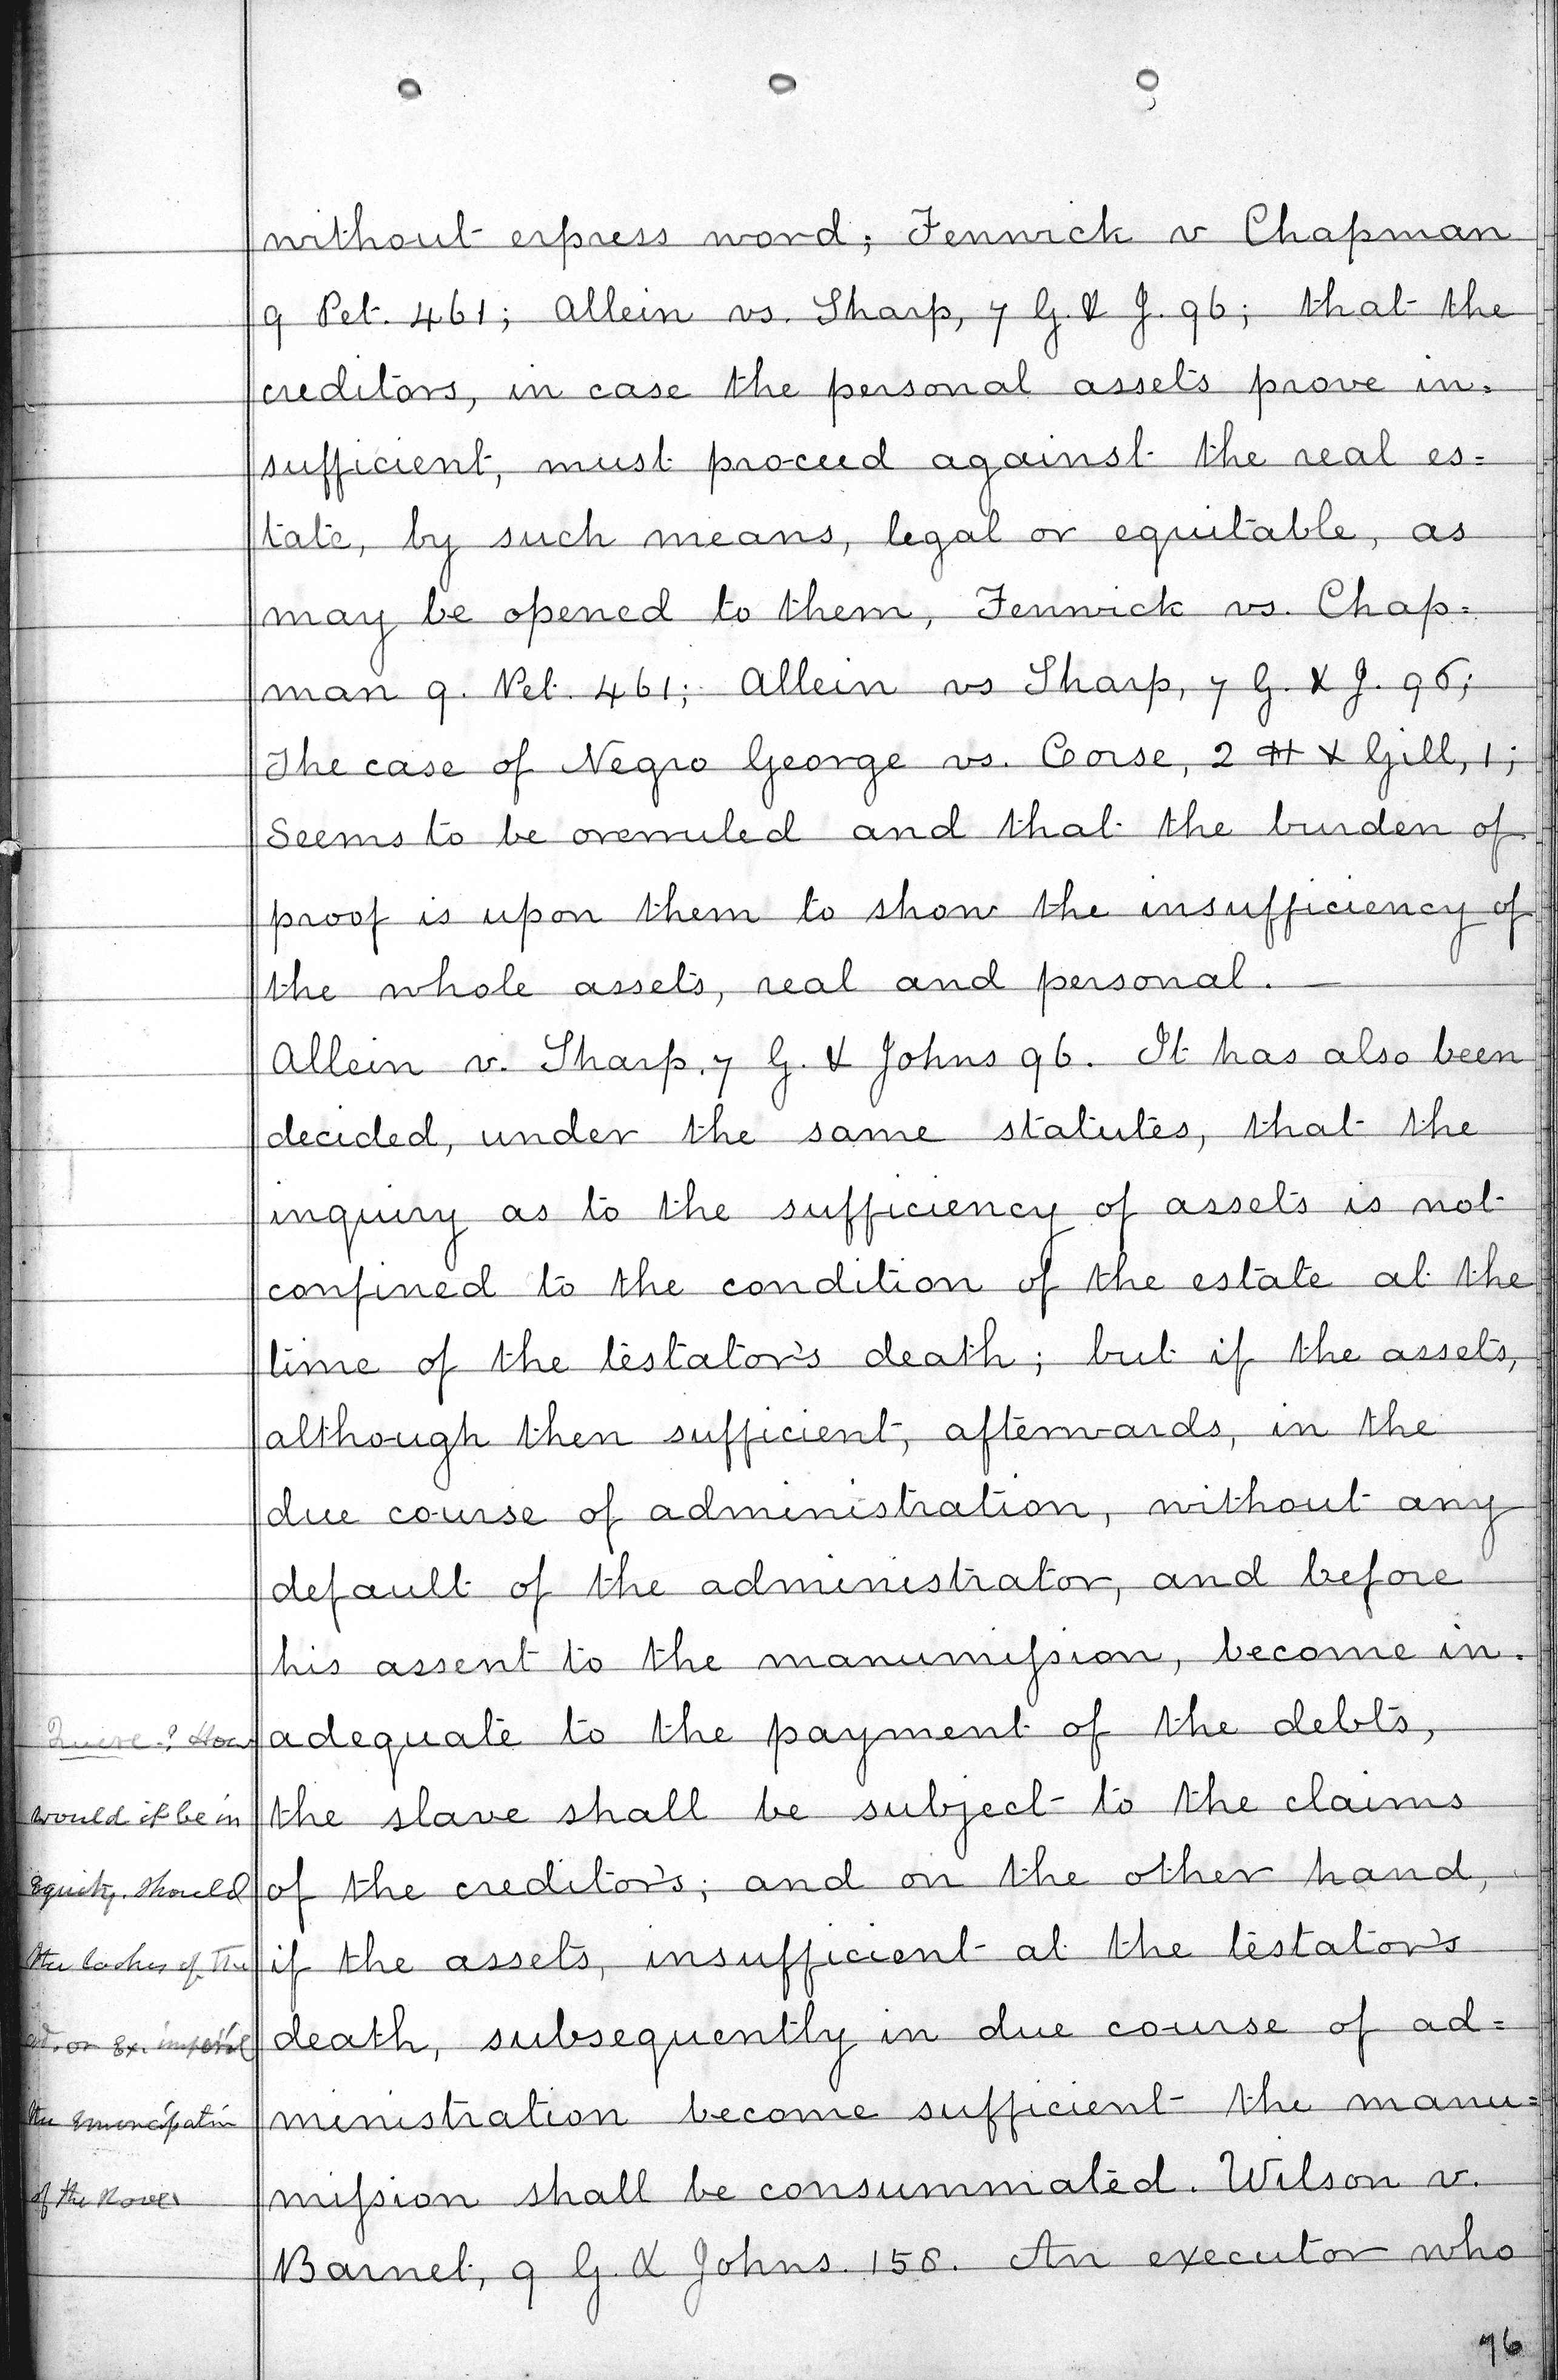 without express word; Fenwick v Chapman
9 Pet. 461; Allein vs. Sharp, 7 G. & J. 96; that the
creditors, in case the personal assets prove in=
sufficient, must proceed against the real es=
tate, by such means, legal or equitable, as
may be opened to them, Fenwick vs. Chap=
man 9. Pet. 461; Allein vs Sharp, 7 G. & J. 96;
The case of Negro George vs. Corse, 2 H & Gill, 1;
Seems to be overruled and that the burden of
proof is upon them to show the insufficiency of
the whole assets, real and personal. —
Allein v. Sharp, 7 G. & Johns 96. It has also been
decided, under the same statutes, that the
inquiry as to the sufficiency of assets is not
confined to the condition of the estate at the
time of the testator's death; but if the assets,
although then sufficient, afterwards, in the
due course of administration, without any
default of the administrator, and before
his assent to the manumission, become in=
adequate to the payment of the debts,
the slave shall be subject to the claims
of the creditors; and on the other hand,
if the assets, insufficient at the testator's
death, subsequently in due course of ad=
ministration become sufficient the manu=
mission shall be consummated. Wilson v.
Barnet, 9 G. & Johns. 158. An executor who
Quere? How
would it be in
Equity, should
the laches of the
ad. or Ex.
the Emancipation
of the
76